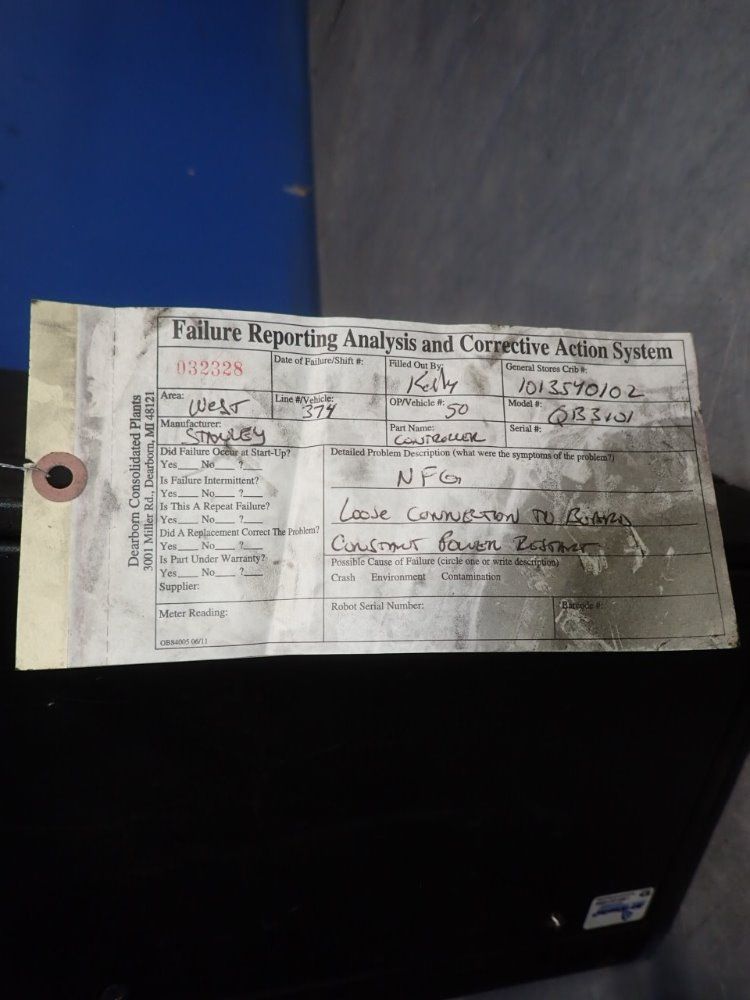 Failure Reporting Analysis and Corrective Action System
032328
Date of Failure/Shift #:
Filled Out By:
Kelly
General Stores Crib #:
1013540102
Area:
West
Line #/Vehicle:
374
OP/Vehicle #:
50
Model #:
QB3101
Manufacturer:
STANLEY
Part Name:
CONTROLLER
Serial #:
Did Failure Occur at Start-Up?
Yes___ No___ ?___
Is Failure Intermittent?
Yes___ No___ ?___
Is This A Repeat Failure?
Yes___ No___ ?___
Did A Replacement Correct The Problem?
Yes___ No___ ?___
Is Part Under Warranty?
Yes___ No___ ?___
Supplier:
Detailed Problem Description (what were the symptoms of the problem?)
NFG
LOOSE CONNECTION TO BOARD
CONSTANT POWER RESTART
Possible Cause of Failure (circle one or write description)
Crash Environment Contamination
Meter Reading:
Robot Serial Number:
Barcode #:
OBS4005 06/11
Dearborn Consolidated Plants
3001 Miller Rd., Dearborn, MI 48121